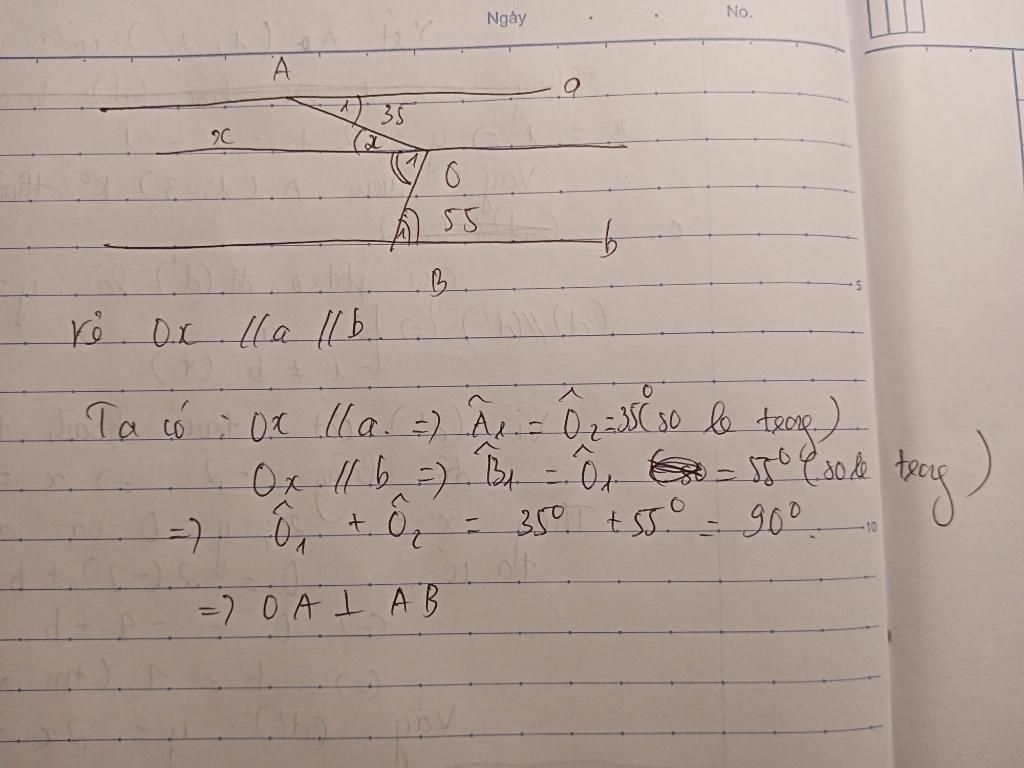 Ngày . . No.
A
a
1 35
x 2
1 O
1 55
b
B
5
Vẽ Ox // a // b
Ta có: Ox // a. => Â1 = Ô2 = 35° (so le trong)
Ox // b => B̂1 = Ô1 = 55° (so le trong)
=> Ô1 + Ô2 = 35° + 55° = 90°.
10
=> OA ⊥ AB